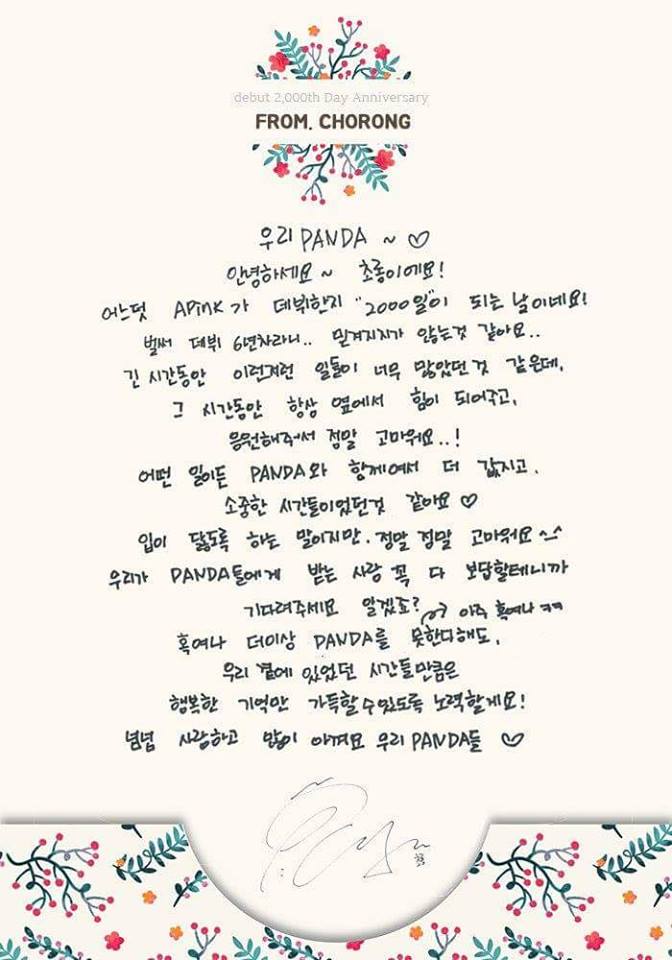 debut 2,000th Day Anniversary
FROM. CHORONG
우리 PANDA ~ ♡
안녕하세요 ~ 초롱이에요!
어느덧 APink가 데뷔한지 "2000일"이 되는 날이네요!
벌써 데뷔 6년차라니.. 믿겨지지가 않는것 같아요..
긴 시간동안 이런저런 일들이 너무 많았던 것 같은데,
그 시간동안 항상 옆에서 힘이 되어주고,
응원해주셔서 정말 고마워요..!
어떤 일이든 PANDA와 함께여서 더 값지고,
소중한 시간들이었던것 같아요 ♡
입이 닳도록 하는 말이지만. 정말 정말 고마워요 ^^
우리가 PANDA들에게 받는 사랑 꼭 다 보답할테니까
기다려주세요 알겠죠?
아주 혹여나 ㅋㅋ
혹여나 더이상 PANDA를 못한다해도,
우리 곁에 있었던 시간들만큼은
행복한 기억만 가득할 수 있도록 노력할게요!
넘넘 사랑하고 많이 아껴요 우리 PANDA들 ♡